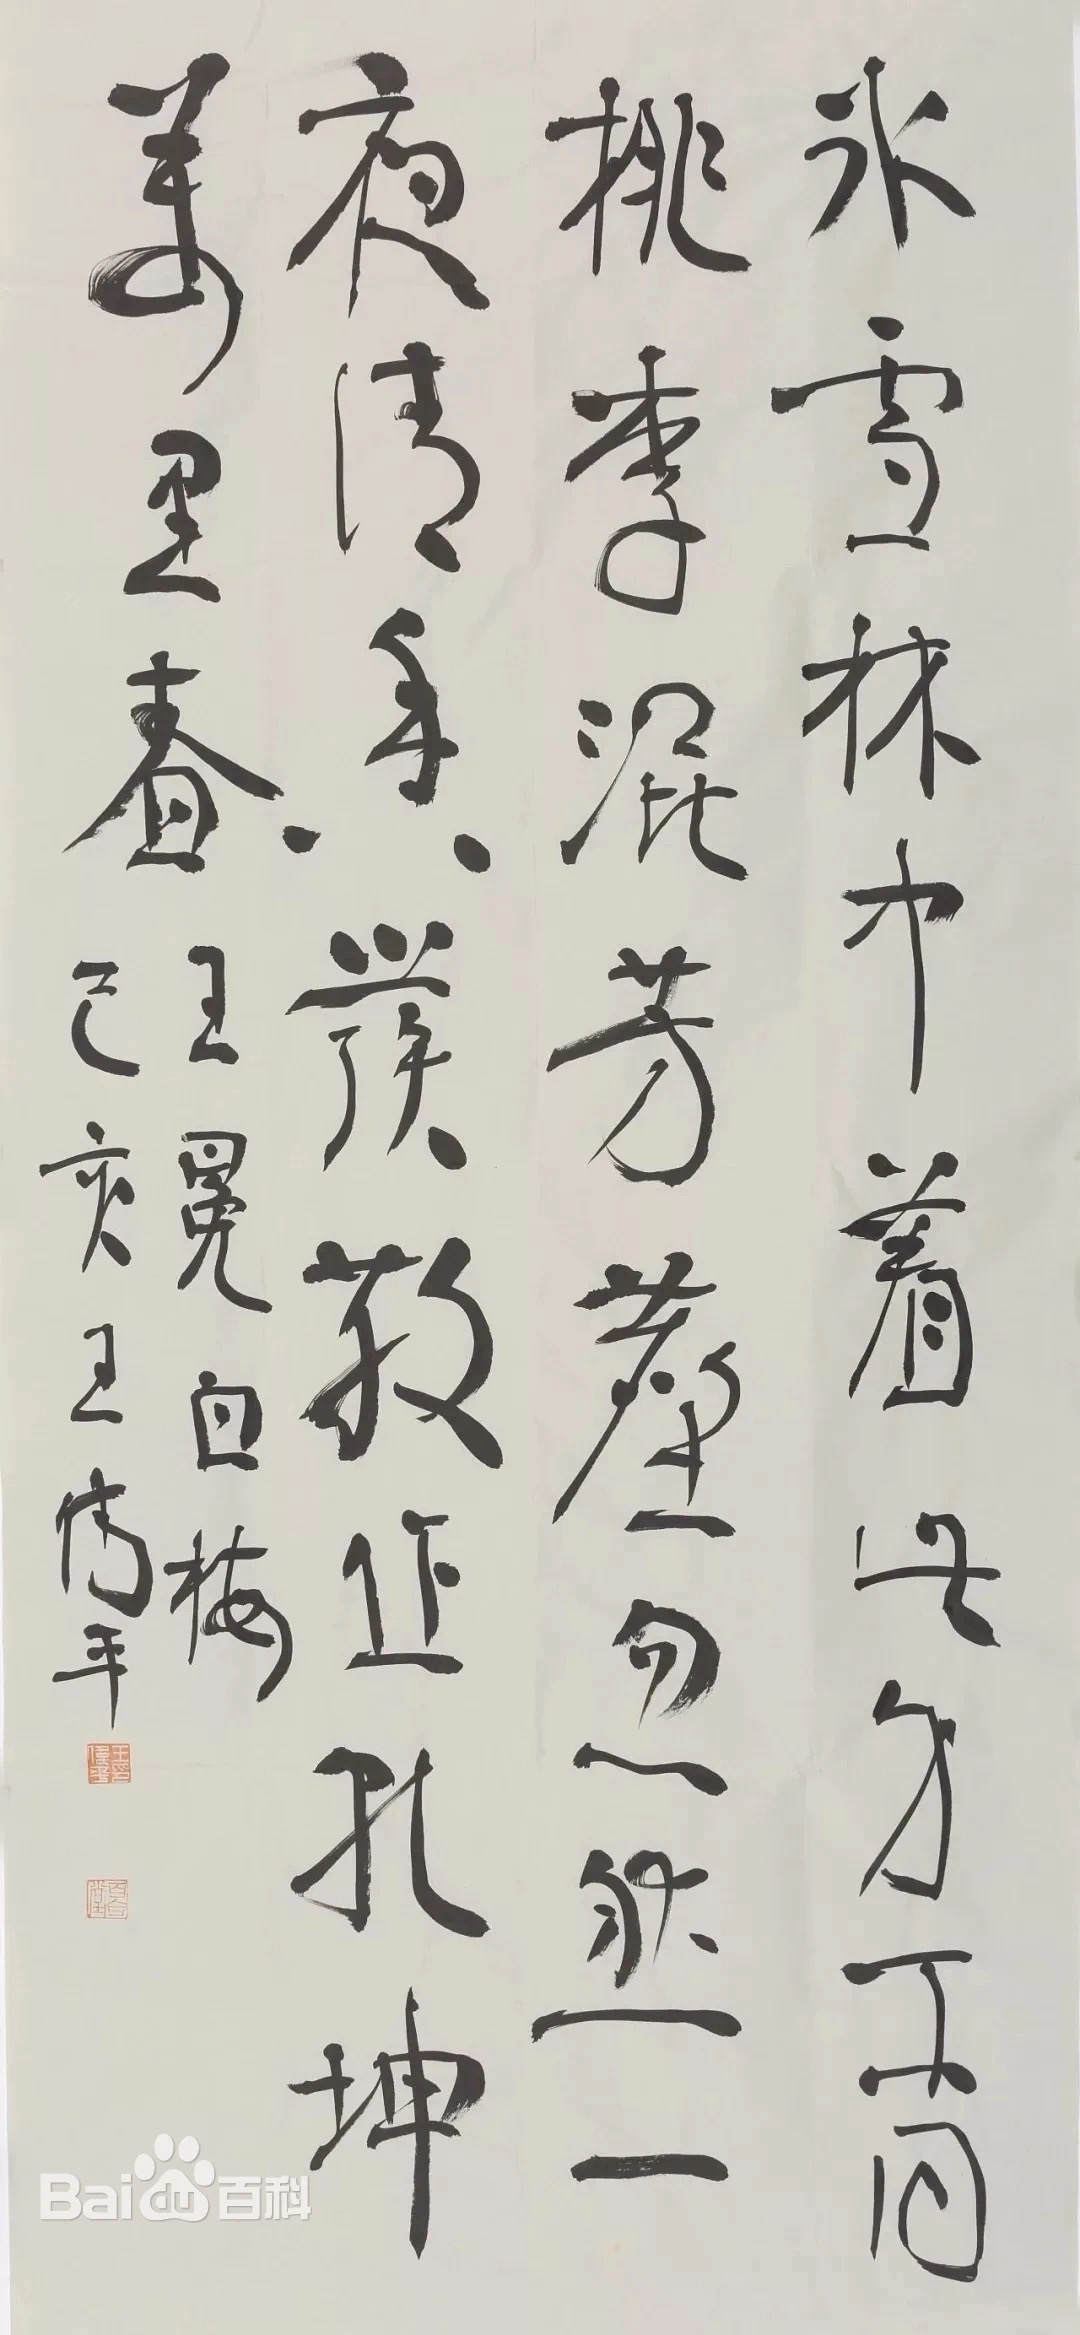 冰雪林中着此身不同
桃李混芳塵忽然一
夜清香發散作乾坤
萬里春
王冕白梅
己亥王偉平
Bai百科